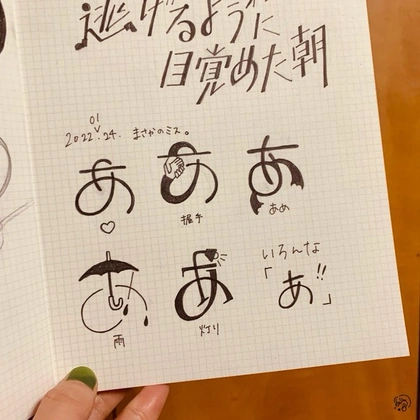 逃げるように
目覚めた朝
01
2022.24. まさかのミス。
あ
あ
握手
あ
あめ
あ
雨
あ
灯り
いろんな
「あ!!」